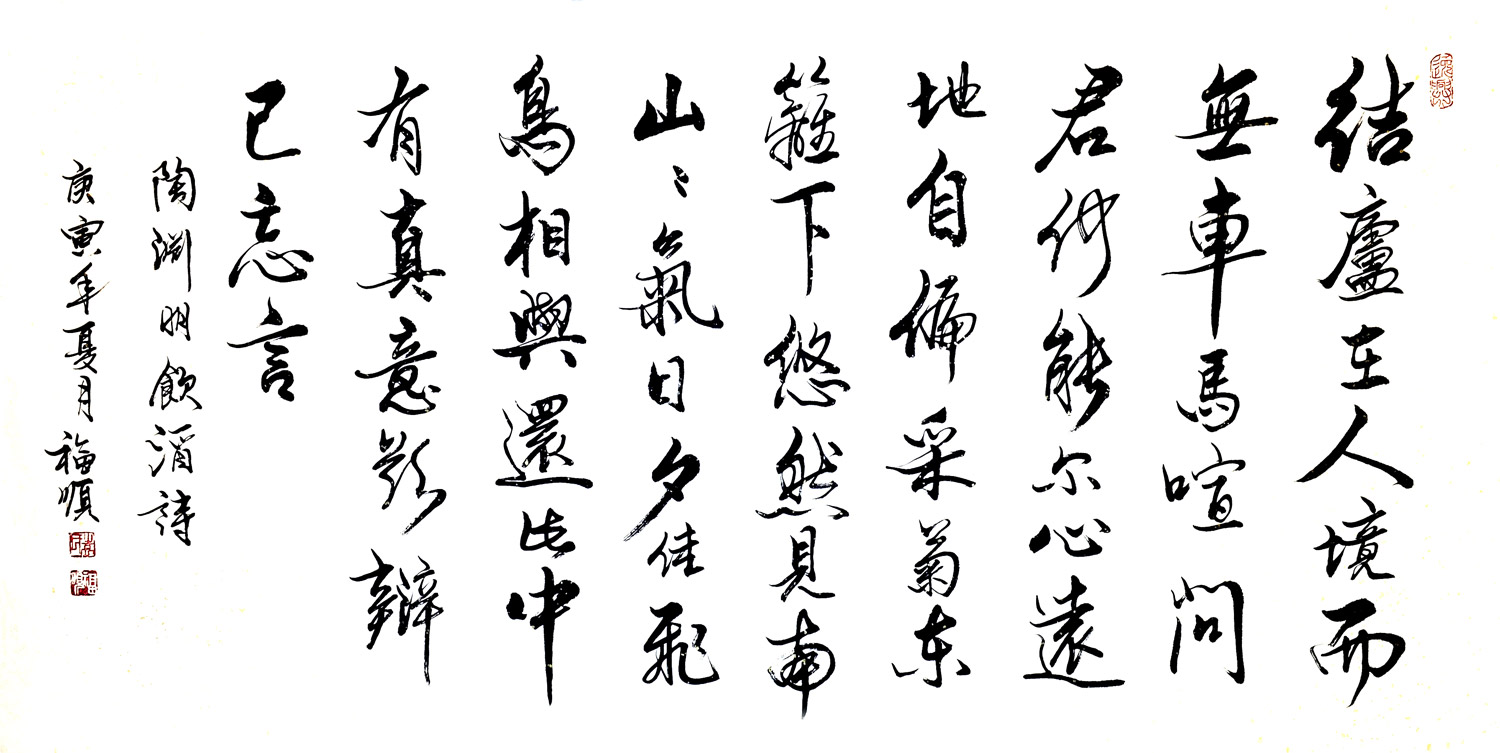 結廬在人境而
無車馬喧問
君何能尔心遠
地自偏采菊东
籬下悠然見南
山山氣日夕佳飛
鳥相與還此中
有真意欲辯
已忘言
陶渊明飲酒詩
庚寅年夏月福順